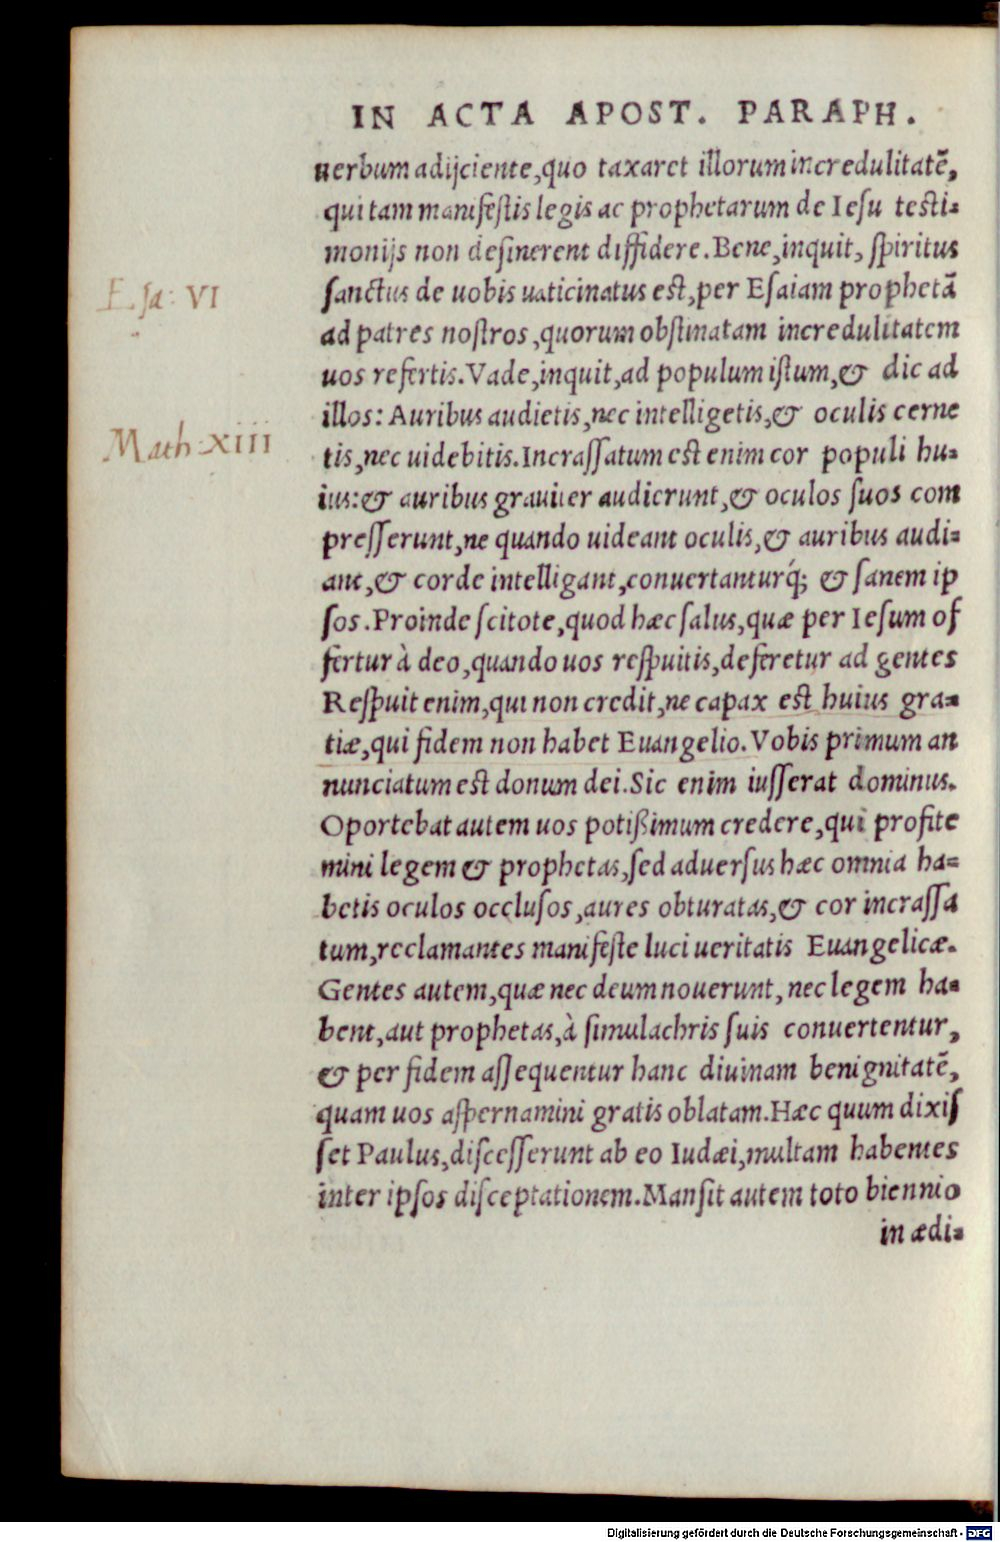 IN ACTA APOST. PARAPH.
uerbum adijciente, quo taxaret illorum incredulitatē,
qui tam manifestis legis ac prophetarum de Iesu testi-
monijs non desinerent diffidere. Bene, inquit, spiritus
Esa: VI
sanctus de uobis uaticinatus est, per Esaiam prophetā
ad patres nostros, quorum obstinatam incredulitatem
uos refertis. Vade, inquit, ad populum istum, & dic ad
illos: Auribus audietis, nec intelligetis, & oculis cerne
Math: XIII
tis, nec uidebitis. Incrassatum est enim cor populi hu-
ius: & auribus grauiter audierunt, & oculos suos com
presserunt, ne quando uideant oculis, & auribus audi-
ant, & corde intelligant, conuertanturq́; & sanem ip
sos. Proinde scitote, quod hæc salus, quæ per Iesum of
fertur à deo, quando uos respuitis, deferetur ad gentes
Respuit enim, qui non credit, ne capax est huius gra-
tiæ, qui fidem non habet Euangelio. Vobis primum an
nunciatum est donum dei. Sic enim iusserat dominus.
Oportebat autem uos potißimum credere, qui profite
mini legem & prophetas, sed aduersus hæc omnia ha-
betis oculos occlusos, aures obturatas, & cor incrassa
tum, reclamantes manifeste luci ueritatis Euangelicæ.
Gentes autem, quæ nec deum nouerunt, nec legem ha-
bent, aut prophetas, à simulachris suis conuertentur,
& per fidem assequentur hanc diuinam benignitatē,
quam uos aspernamini gratis oblatam. Hæc quum dixis
set Paulus, discesserunt ab eo Iudæi, multam habentes
inter ipsos disceptationem. Mansit autem toto biennio
in ædi-
Digitalisierung gefördert durch die Deutsche Forschungsgemeinschaft - DFG